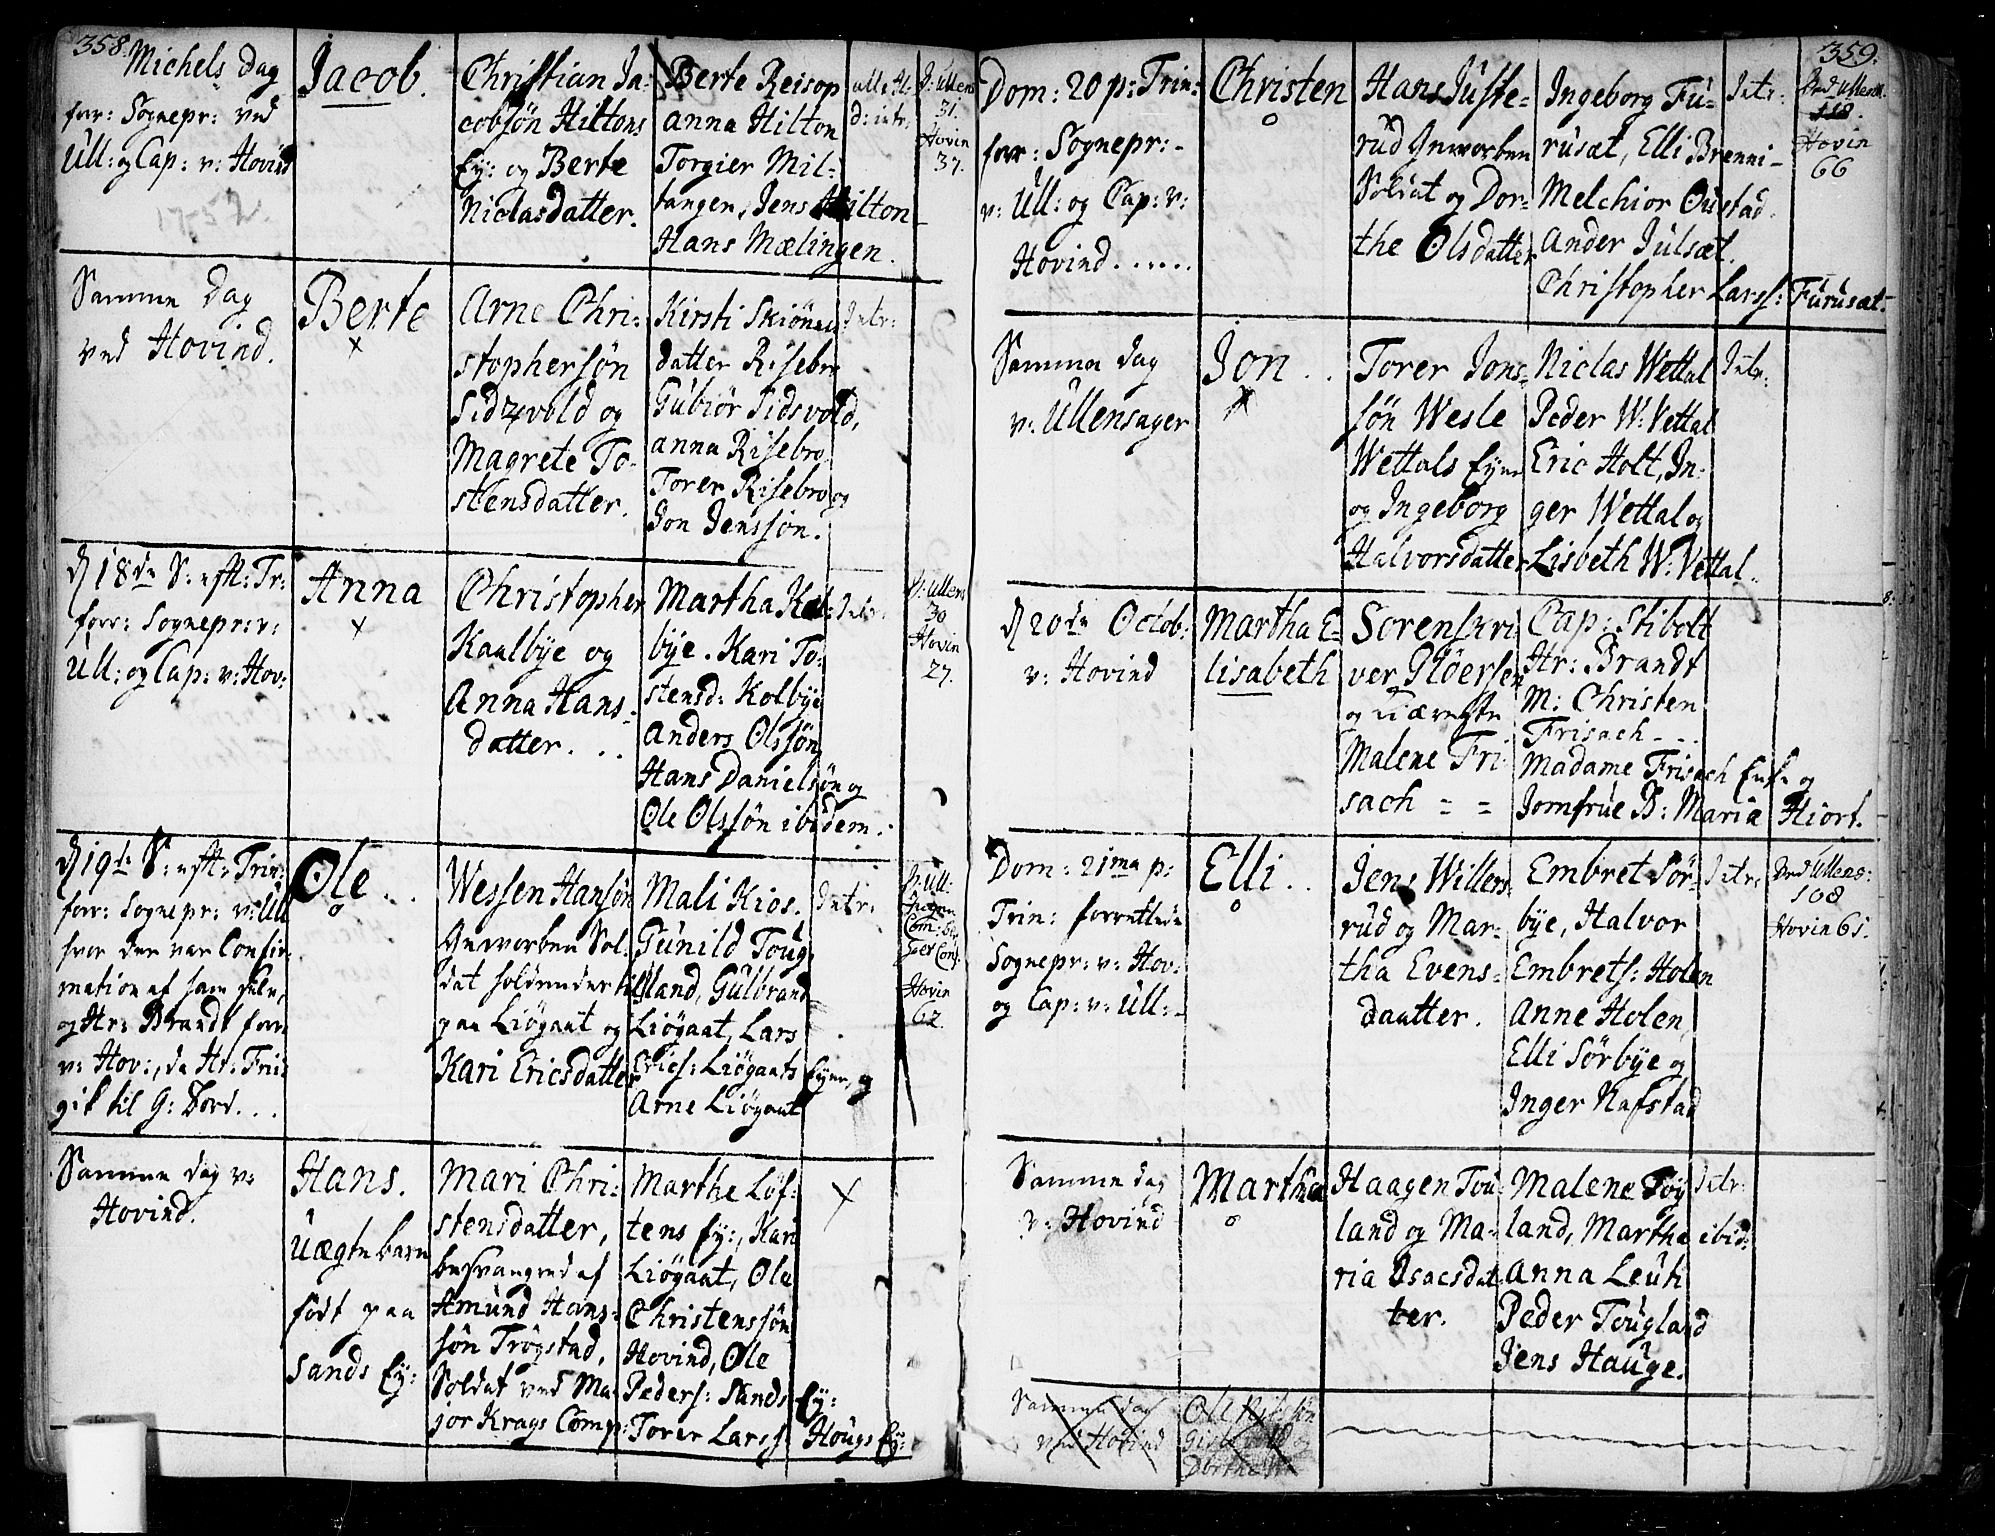 358.
Michels dag
forr: Sognepr: ved
Ull: og Cap: v: Hovind
1752.
Jacob.
Christian Ja-
cobsön Hiltons
Ey: og Berte
Niclasdatter.
Berte Reisop
Anna Hilton
Torgier Mil-
tangen, Jens Hilton
Hans Mælingen.
d: intr:
v: Ullens
31.
Hovin
37.
Samme dag
ved Hovind.
Berte
x
Arne Chri-
stophersön
Sidzvold og
Magrete To-
stensdatter.
Kirsti Skiönis
datter Risebro
Gubiör Sidsvold,
Anna Risebro
Torer Risebro og
Jon Jenssön.
Intr:
d 18de S: eftr: Tr:
forr: Sognepr: v:
Ull: og Cap: v: Hov:
Anna
x
Christopher
Kaalbye og
Anna Hans-
datter. . .
Martha Kal-
bye. Kari To-
stensd: Kolbye
Anders Olssön
Hans Danielsön og
Ole Olssön ibidem.
Intr:
v: Ullens
30
Hovin
27.
d 19de S: eftr: Trin:
forr: Sognepr: v: Ull
hvor der var Confir-
mation af ham selv,
og Hr: Brandt forr:
v: Hov:, da Hr: Friis
gik til G: Bord. . .
Ole . .
o
Wessen Hansön
Gevorben Sol-
dat holdende til
paa Liögaat og
Kari Ericsdatter
Mali Kios.
Gunild Toug-
land, Gulbrand
Liögaat, Lars
Erics: Liögaats Eyer, og
Arne Liögaat
Intr:
v: Ull:
Hovin
62.
Samme dag v:
Hovind.
Hans.
Uægte barn
födt paa
Sands Ey:
Mari Chri-
stensdatter,
besvangred af
Amund Hans-
sön Trögstad,
Soldat ved Ma-
jor Krags Comp:
Marthe Löf-
tens Ey:, Kari
Liögaat, Ole
Christenssön
Hovind, Ole
Peders: Sands Ey:
Torer Larss: Hougs Ey:
x
359.
Dom: 20 p: Trin:
forr: Sognepr:
v: Ull: og Cap: v:
Hovind. . . . . .
Christen
o
Hans Juste-
rud Gevorben
Soldat og Dor-
the Olsdatter
Ingeborg Fu-
rusæt, Elli Brenni-
Melchior Oustad.
Ander Julsæt.
Christopher Larss: Furusæt.
Intr:
Ved Ullens.
118.
Hovin
66
Samme dag
v: Ullensager
Jon . .
x
Torer Jons-
sön Wesle
Wettals Eyer
og Ingeborg
Halvorsdatter
Niclas Wettal
Peder W: Vettal
Eric Holt, In-
ger Wettal og
Lisbeth W: Vettal.
Intr:
d 20de Octob:
v: Hovind
Martha E-
lisabeth
Sorenskri-
ver Plöersen
og Kiæreste
Malene Fri-
sach = =
Cap: Stibolt
Hr: Brandt
M: Christen
Frisach - -
Madame Frisach Enke og
Jomfrue B: Maria Hiort.
Dom: 21ma p:
Trin: forrettede
Sognepr: v: Hov:
og Cap: v: Ull:
Elli . .
o
Jens Willers-
rud og Mar-
tha Evens-
daatter.
Embret Sör-
bye, Halvor
Embrets: Holen
Anne Holen,
Elli Sörbye og
Inger Rafstad
Intr:
Ved Ullens:
108
Hovin 65.
Samme dag
v: Hovind
Martha
o
Haagen Tou-
land og Ma-
ria Isacsdat-
ter.
Malene Toy-
land, Martha ibid:
Anna Leuti
Peder Tougland
Jens Hauge.
Intr:
Samme dag
ved Hovind
Ole